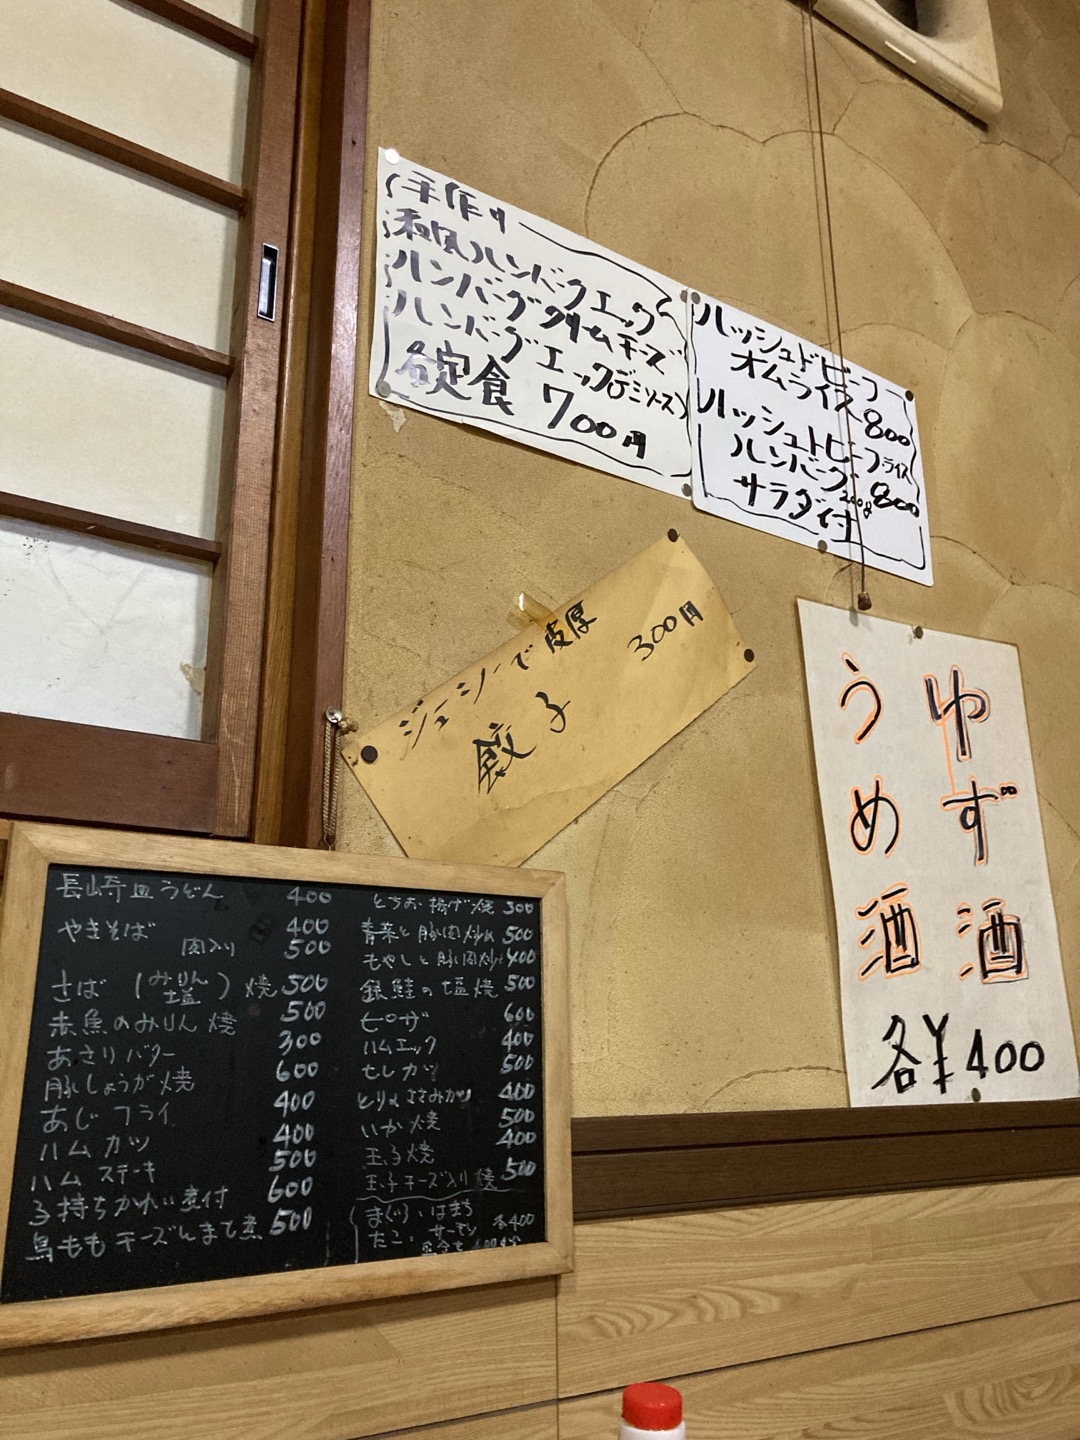 手作り
和風ハンバーグエッグ
ハンバーグクリームチーズ
ハンバーグエッグ(デミソース)
各定食 700円
ハッシュドビーフ
オムライス 800
ハッシュドビーフライス
ハンバーグ200g 800
サラダ付
ジューシーで皮厚
餃子 300円
ゆず酒
うめ酒
各¥400
長崎皿うどん 400
やきそば 400
肉入り 500
さば(みりん 塩)焼 500
赤魚のみりん焼 500
あさりバター 300
豚しょうが焼 600
あじフライ 400
ハムカツ 400
ハムステーキ 500
子持ちかれい煮付 600
鳥ももチーズトマト煮 500
とちお揚げ焼 300
青菜と豚肉炒め 500
もやしと豚肉炒め 400
銀鮭の塩焼 500
ピザ 600
ハムエッグ 400
ヒレカツ 500
とりささみカツ 400
いか焼 500
玉子焼 400
玉子チーズ入り焼 500
まぐろ、はまち
たこ、サーモン 各400